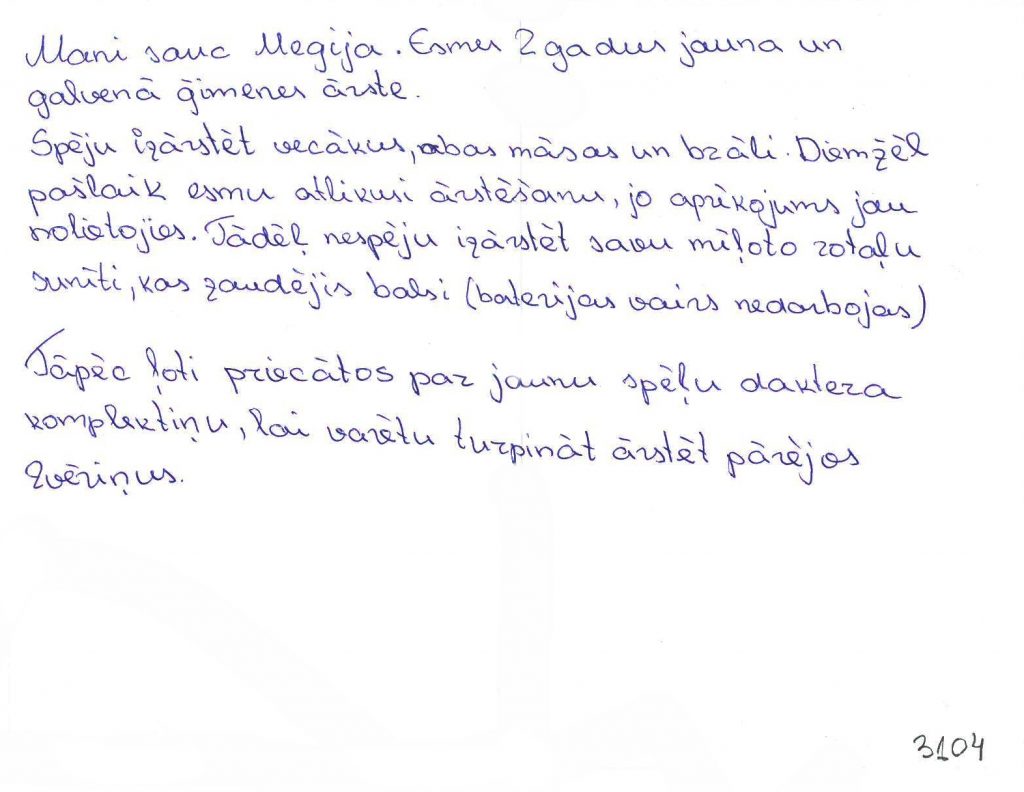 Mani sauc Megija. Esmu 2 gadus jauna un
galvenā ģimenes ārste.
Spēju izārstēt vecākus, abas māsas un brāli. Diemžēl
pašlaik esmu atlikusi ārstēšanu, jo aprīkojums jau
nolietojies. Tādēļ nespēju izārstēt savu mīļoto rotaļu
sunīti, kas zaudējis balsi (baterijas vairs nedarbojas)
Tāpēc ļoti priecātos par jaunu spēļu daktera
komplektiņu, lai varētu turpināt ārstēt pārējos
zvēriņus.
3104